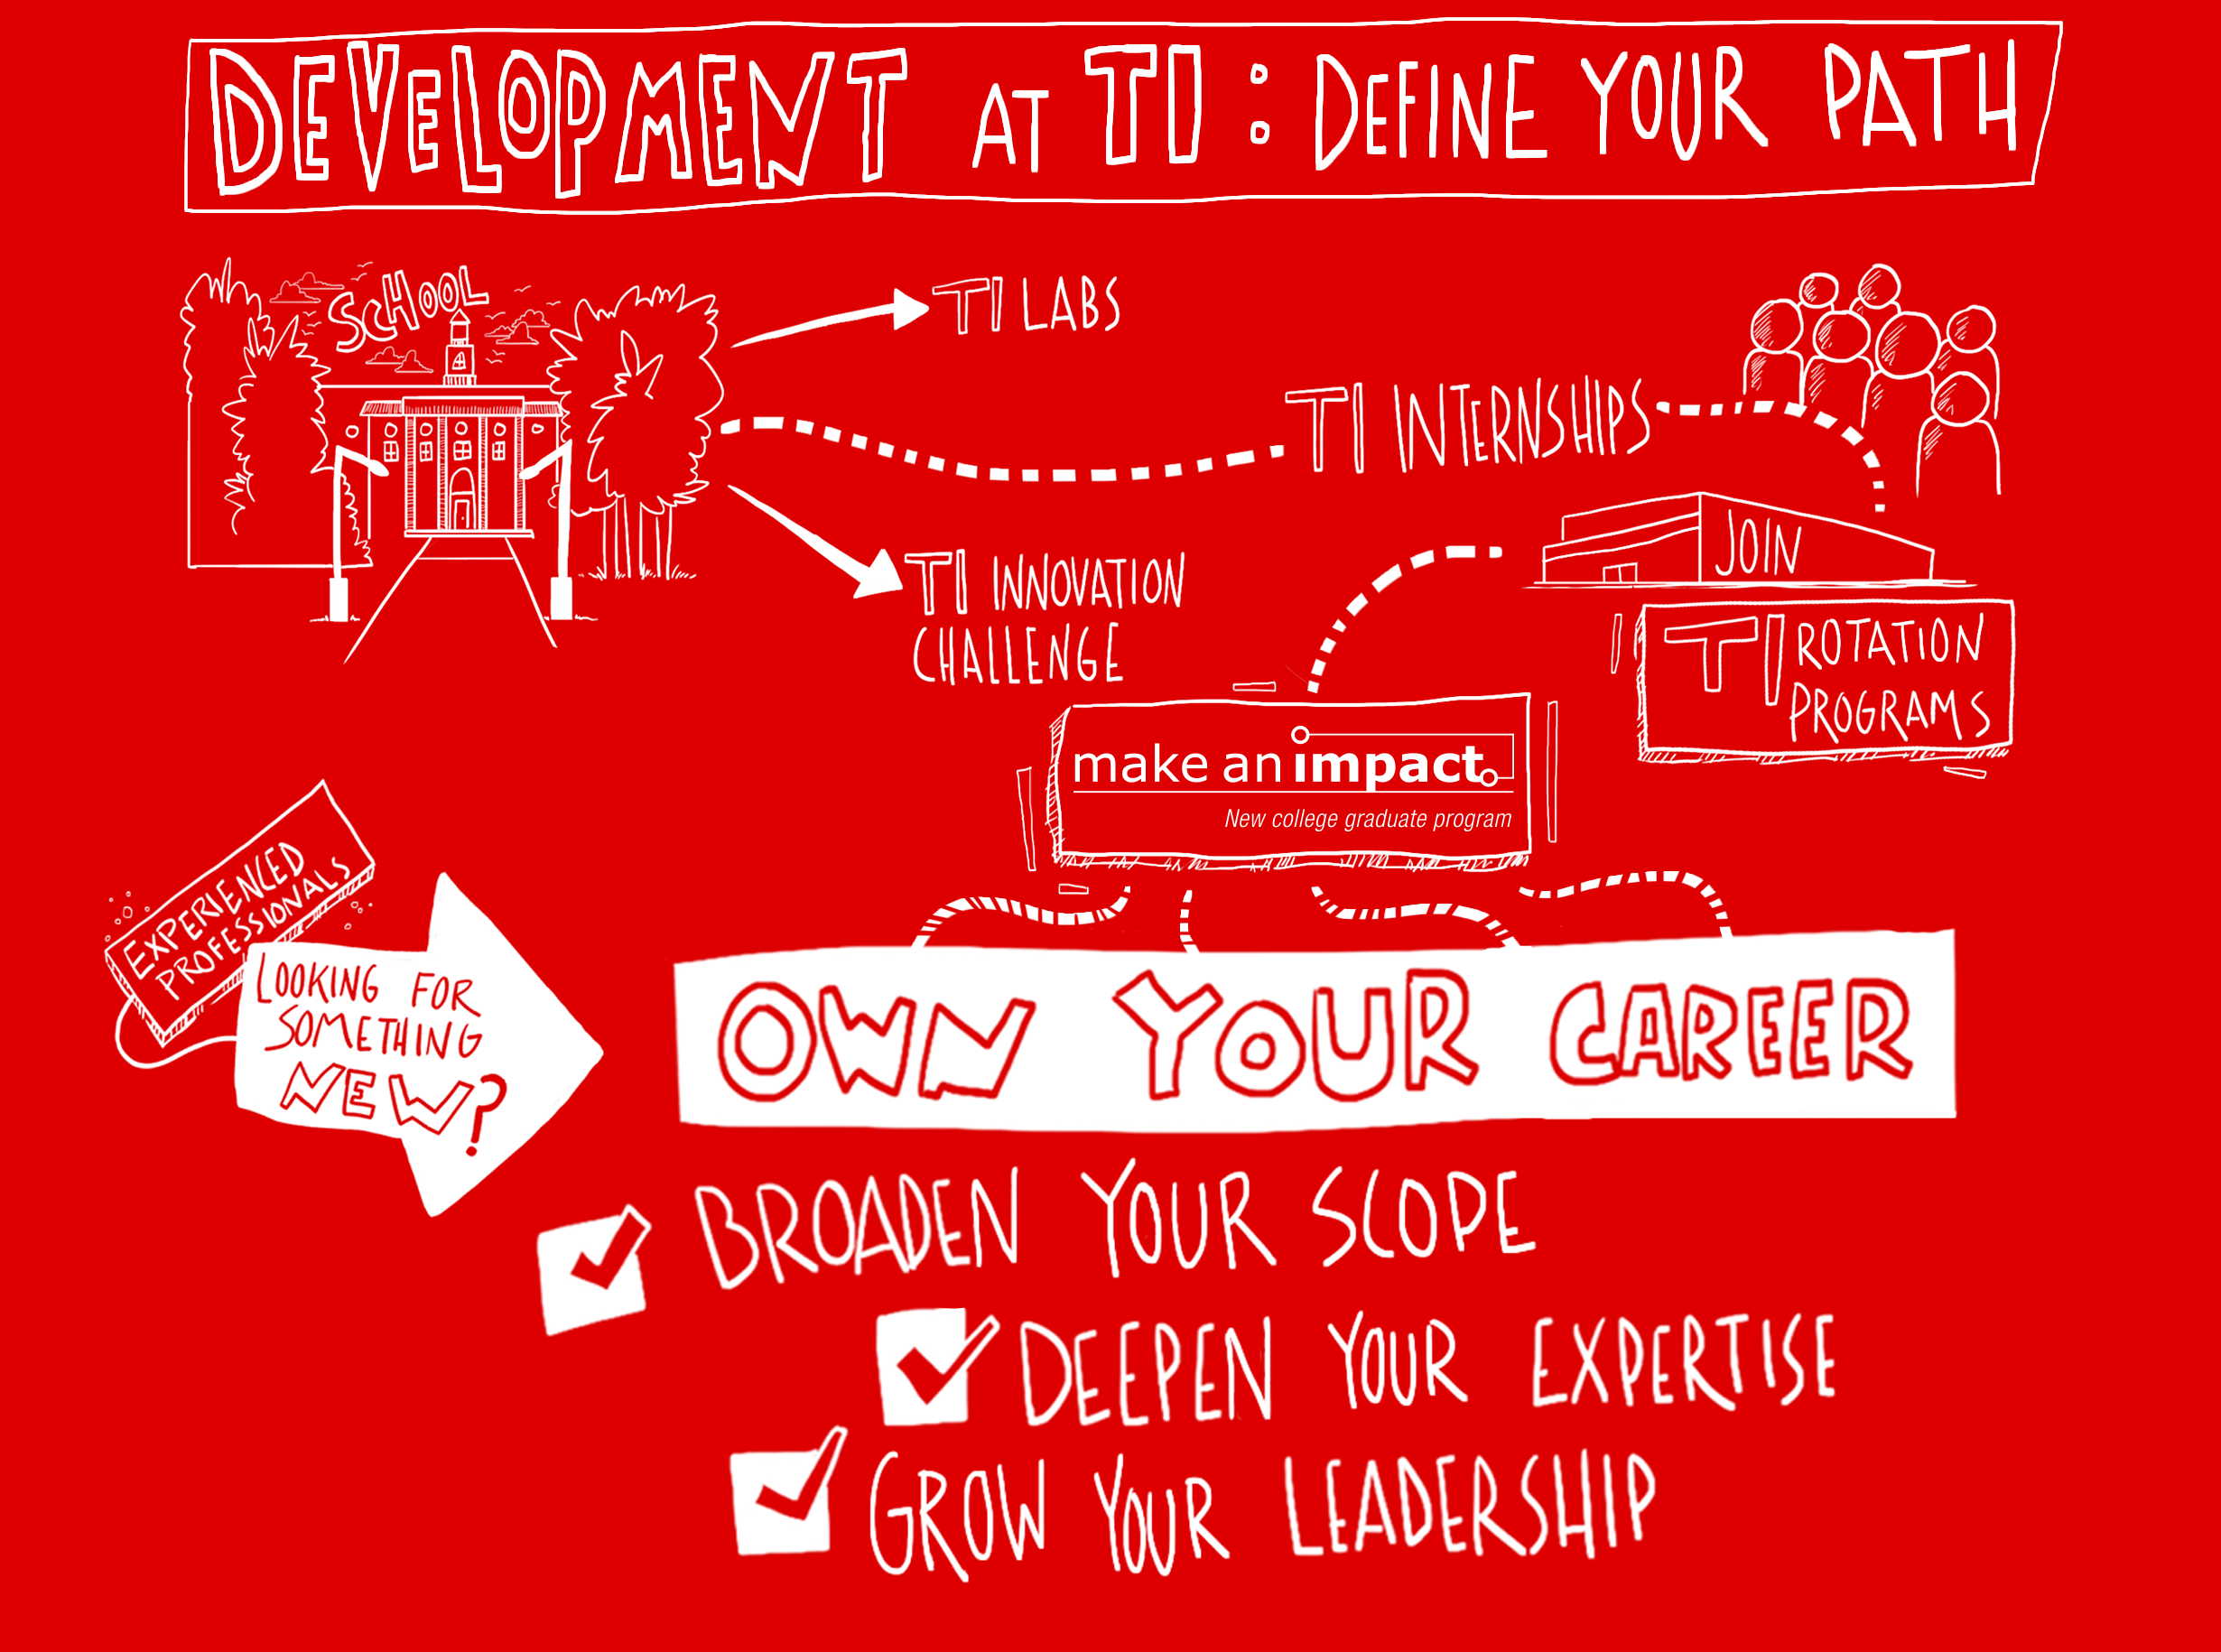 DEVELOPMENT AT TI: DEFINE YOUR PATH
SCHOOL
TI LABS
TI INTERNSHIPS
TI INNOVATION
CHALLENGE
JOIN
TI ROTATION
PROGRAMS
make an impact.
New college graduate program
EXPERIENCED
PROFESSIONALS
LOOKING FOR
SOMETHING
NEW?
OWN YOUR CAREER
BROADEN YOUR SCOPE
DEEPEN YOUR EXPERTISE
GROW YOUR LEADERSHIP